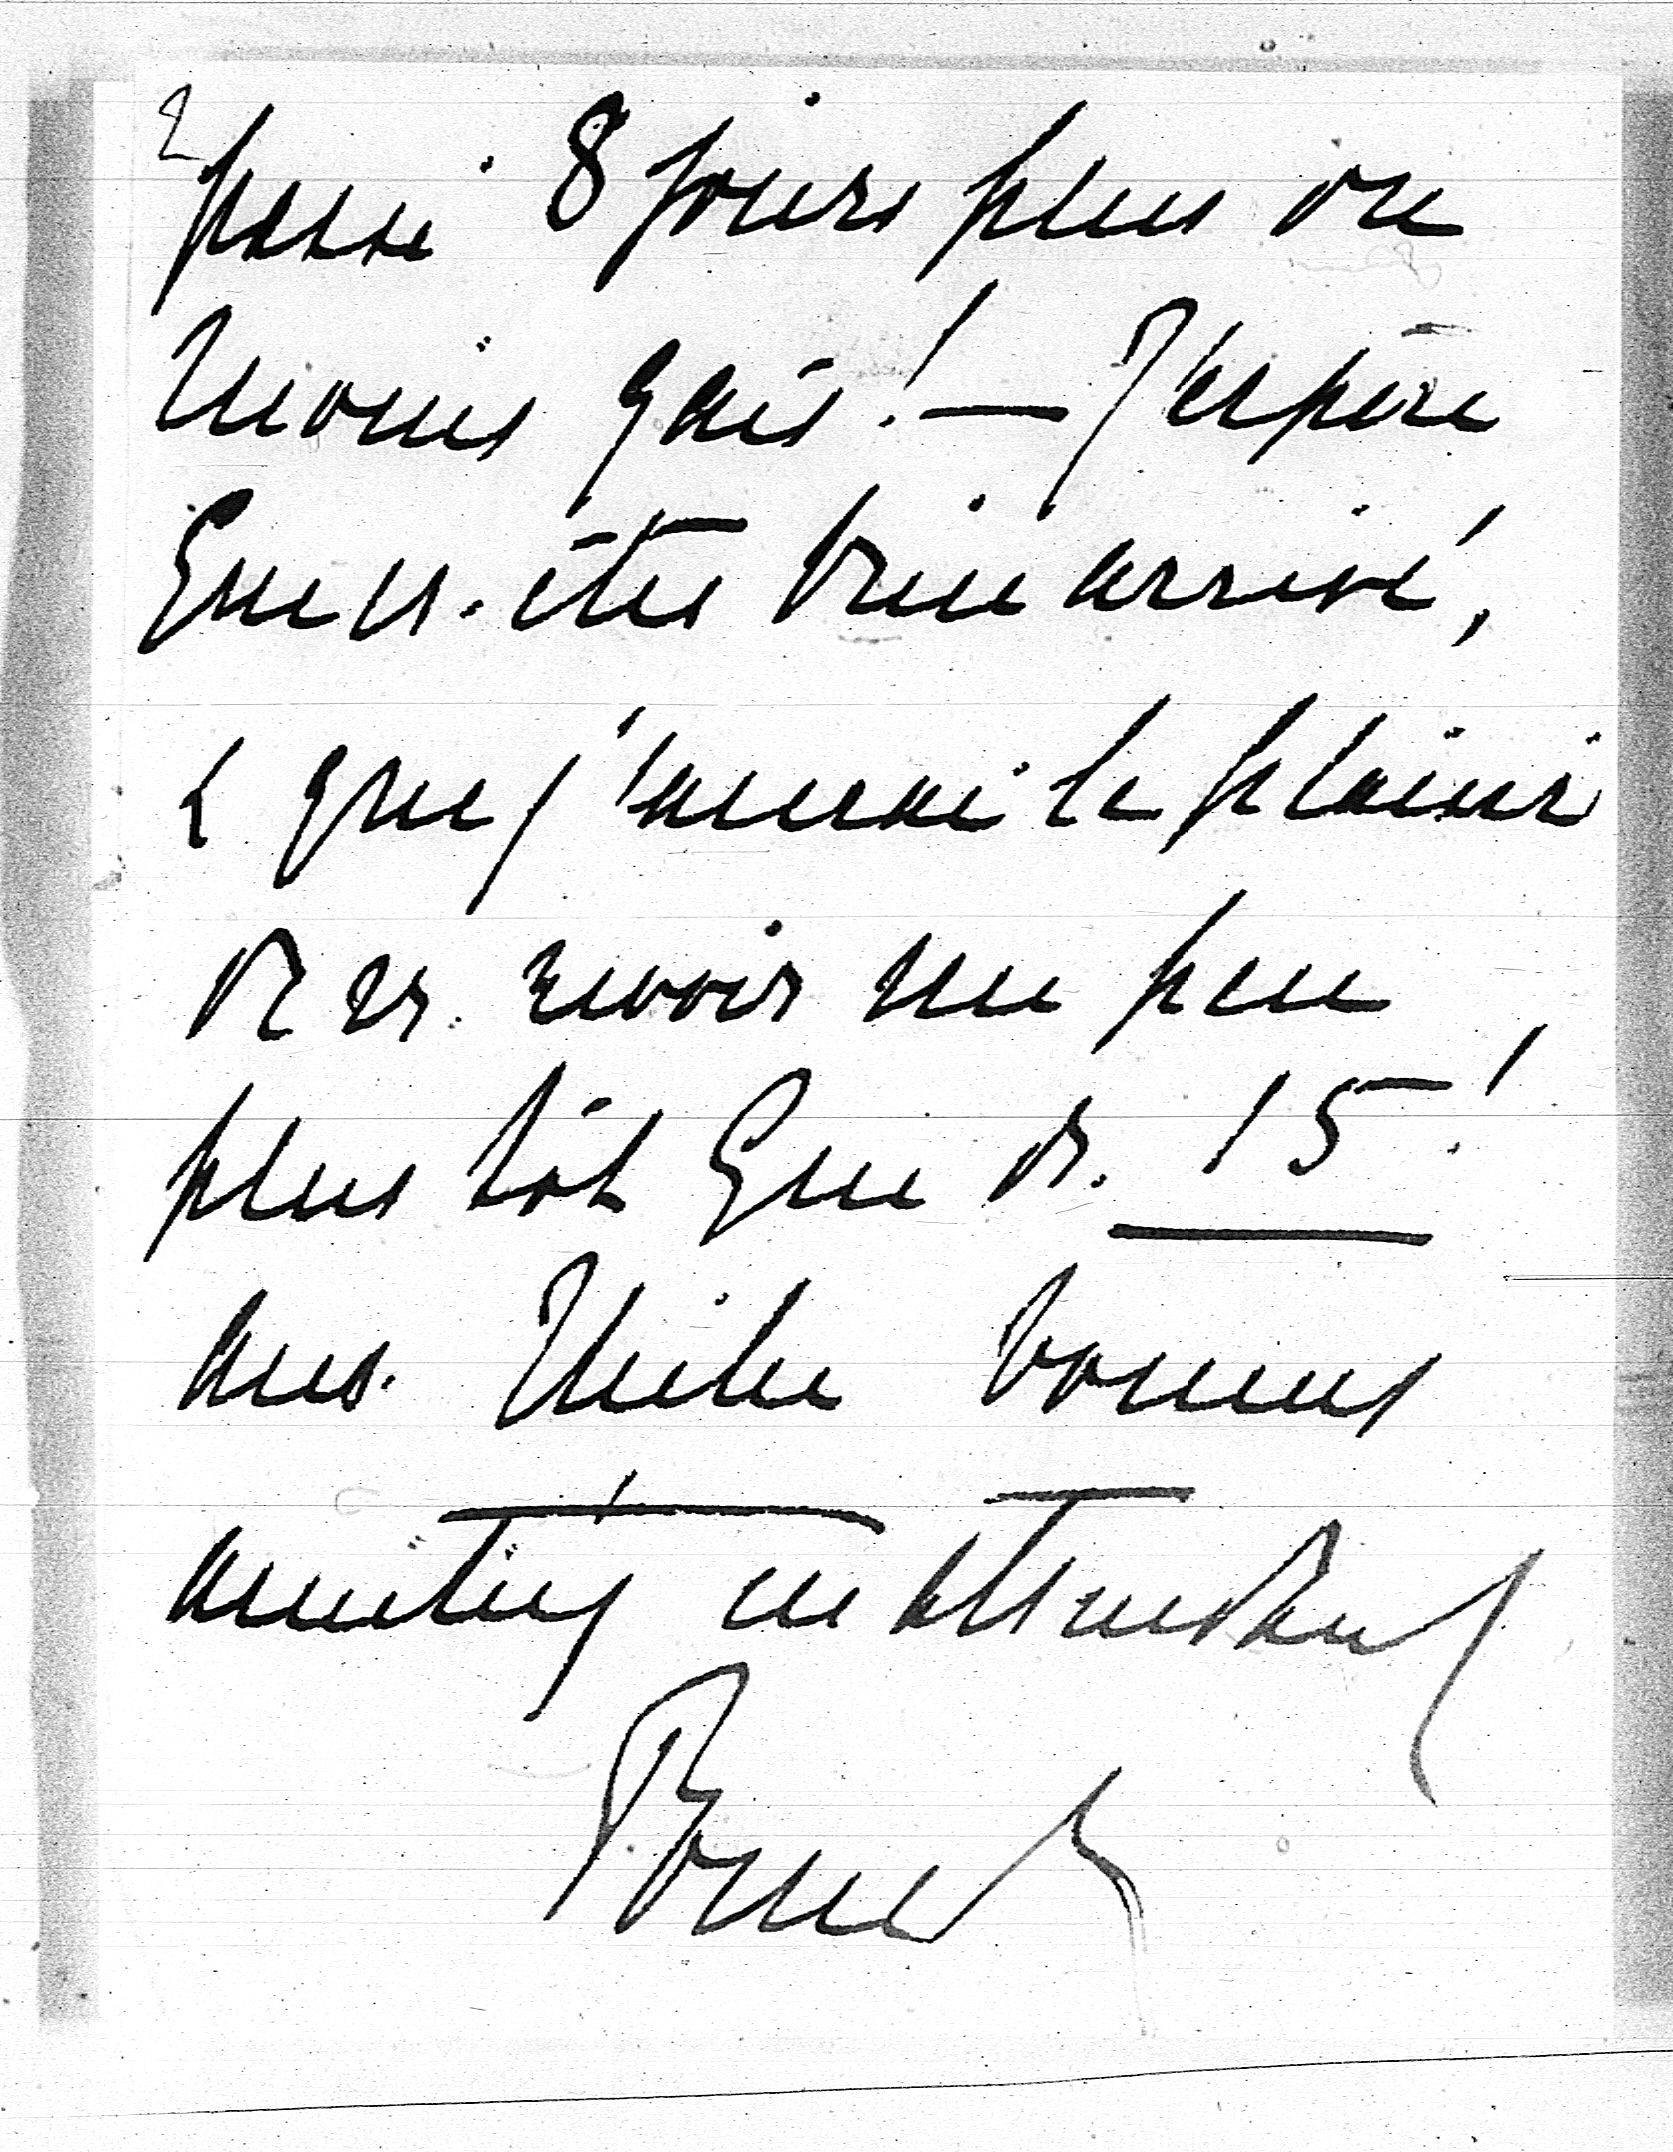 2
passé 8 jours plus ou
moins gais! — J'espère
que v. êtes bien arrivé,
& que j'aurai le plaisir
de vs. revoir un peu
plus tôt que ds. 15!
ans. Mille bonnes
amitiés en attendant